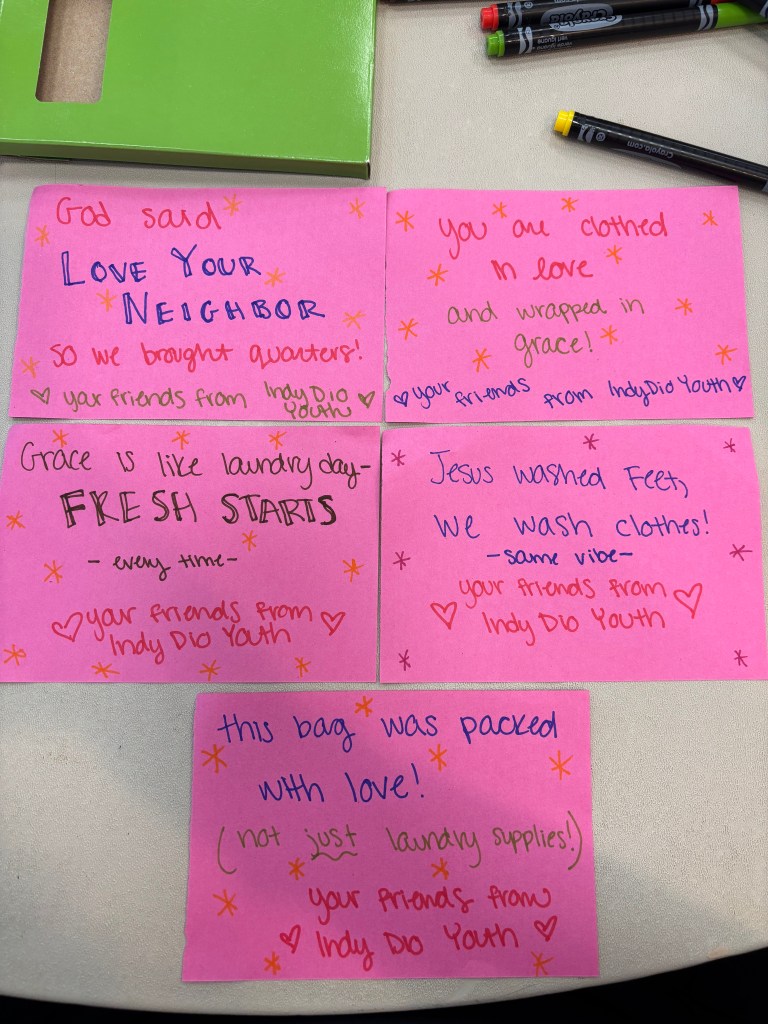 Crayola
Crayola.com
God said
LOVE YOUR
NEIGHBOR
so we brought quarters!
your friends from Indy Dio
Youth
you are clothed
in love
and wrapped in
grace!
your friends from Indy Dio Youth
Grace is like laundry day-
FRESH STARTS
- every time -
your friends from
Indy Dio Youth
Jesus washed Feet,
we wash clothes!
-same vibe-
your friends from
Indy Dio Youth
this bag was packed
with love!
(not just laundry supplies!)
your friends from
Indy Dio Youth